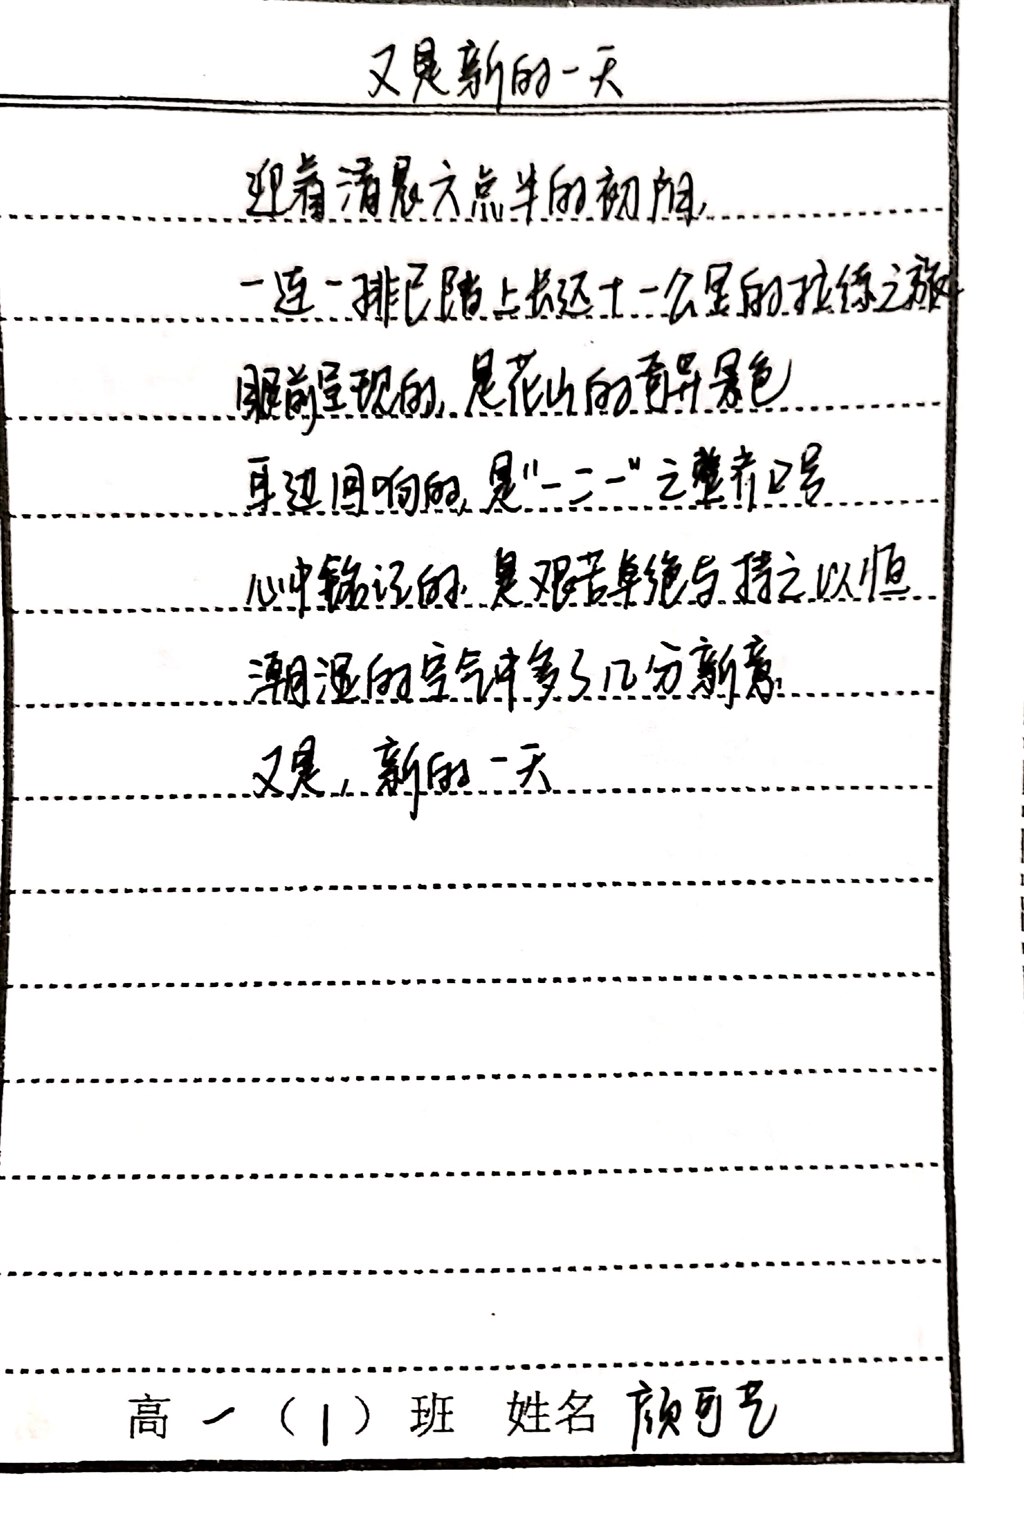 又是新的一天
迎着清晨六点半的初阳，
一连一排已踏上长达十一公里的拉练之旅
眼前呈现的，是花山的奇异景色
耳边回响的，是“一二一”之整齐口号
心中铭记的，是艰苦卓绝与持之以恒
潮湿的空气中多了几分新意
又是，新的一天
高一（1）班 姓名 颜可艺